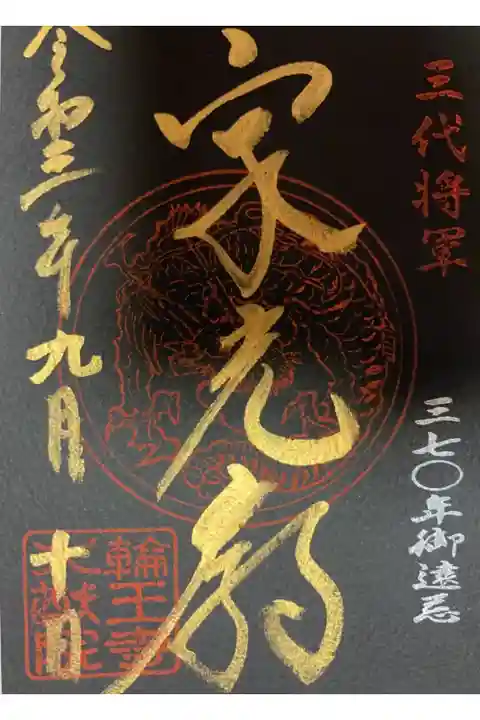 三代将軍
三七〇年御遠忌
家光廟
令和三年九月十日
輪王寺